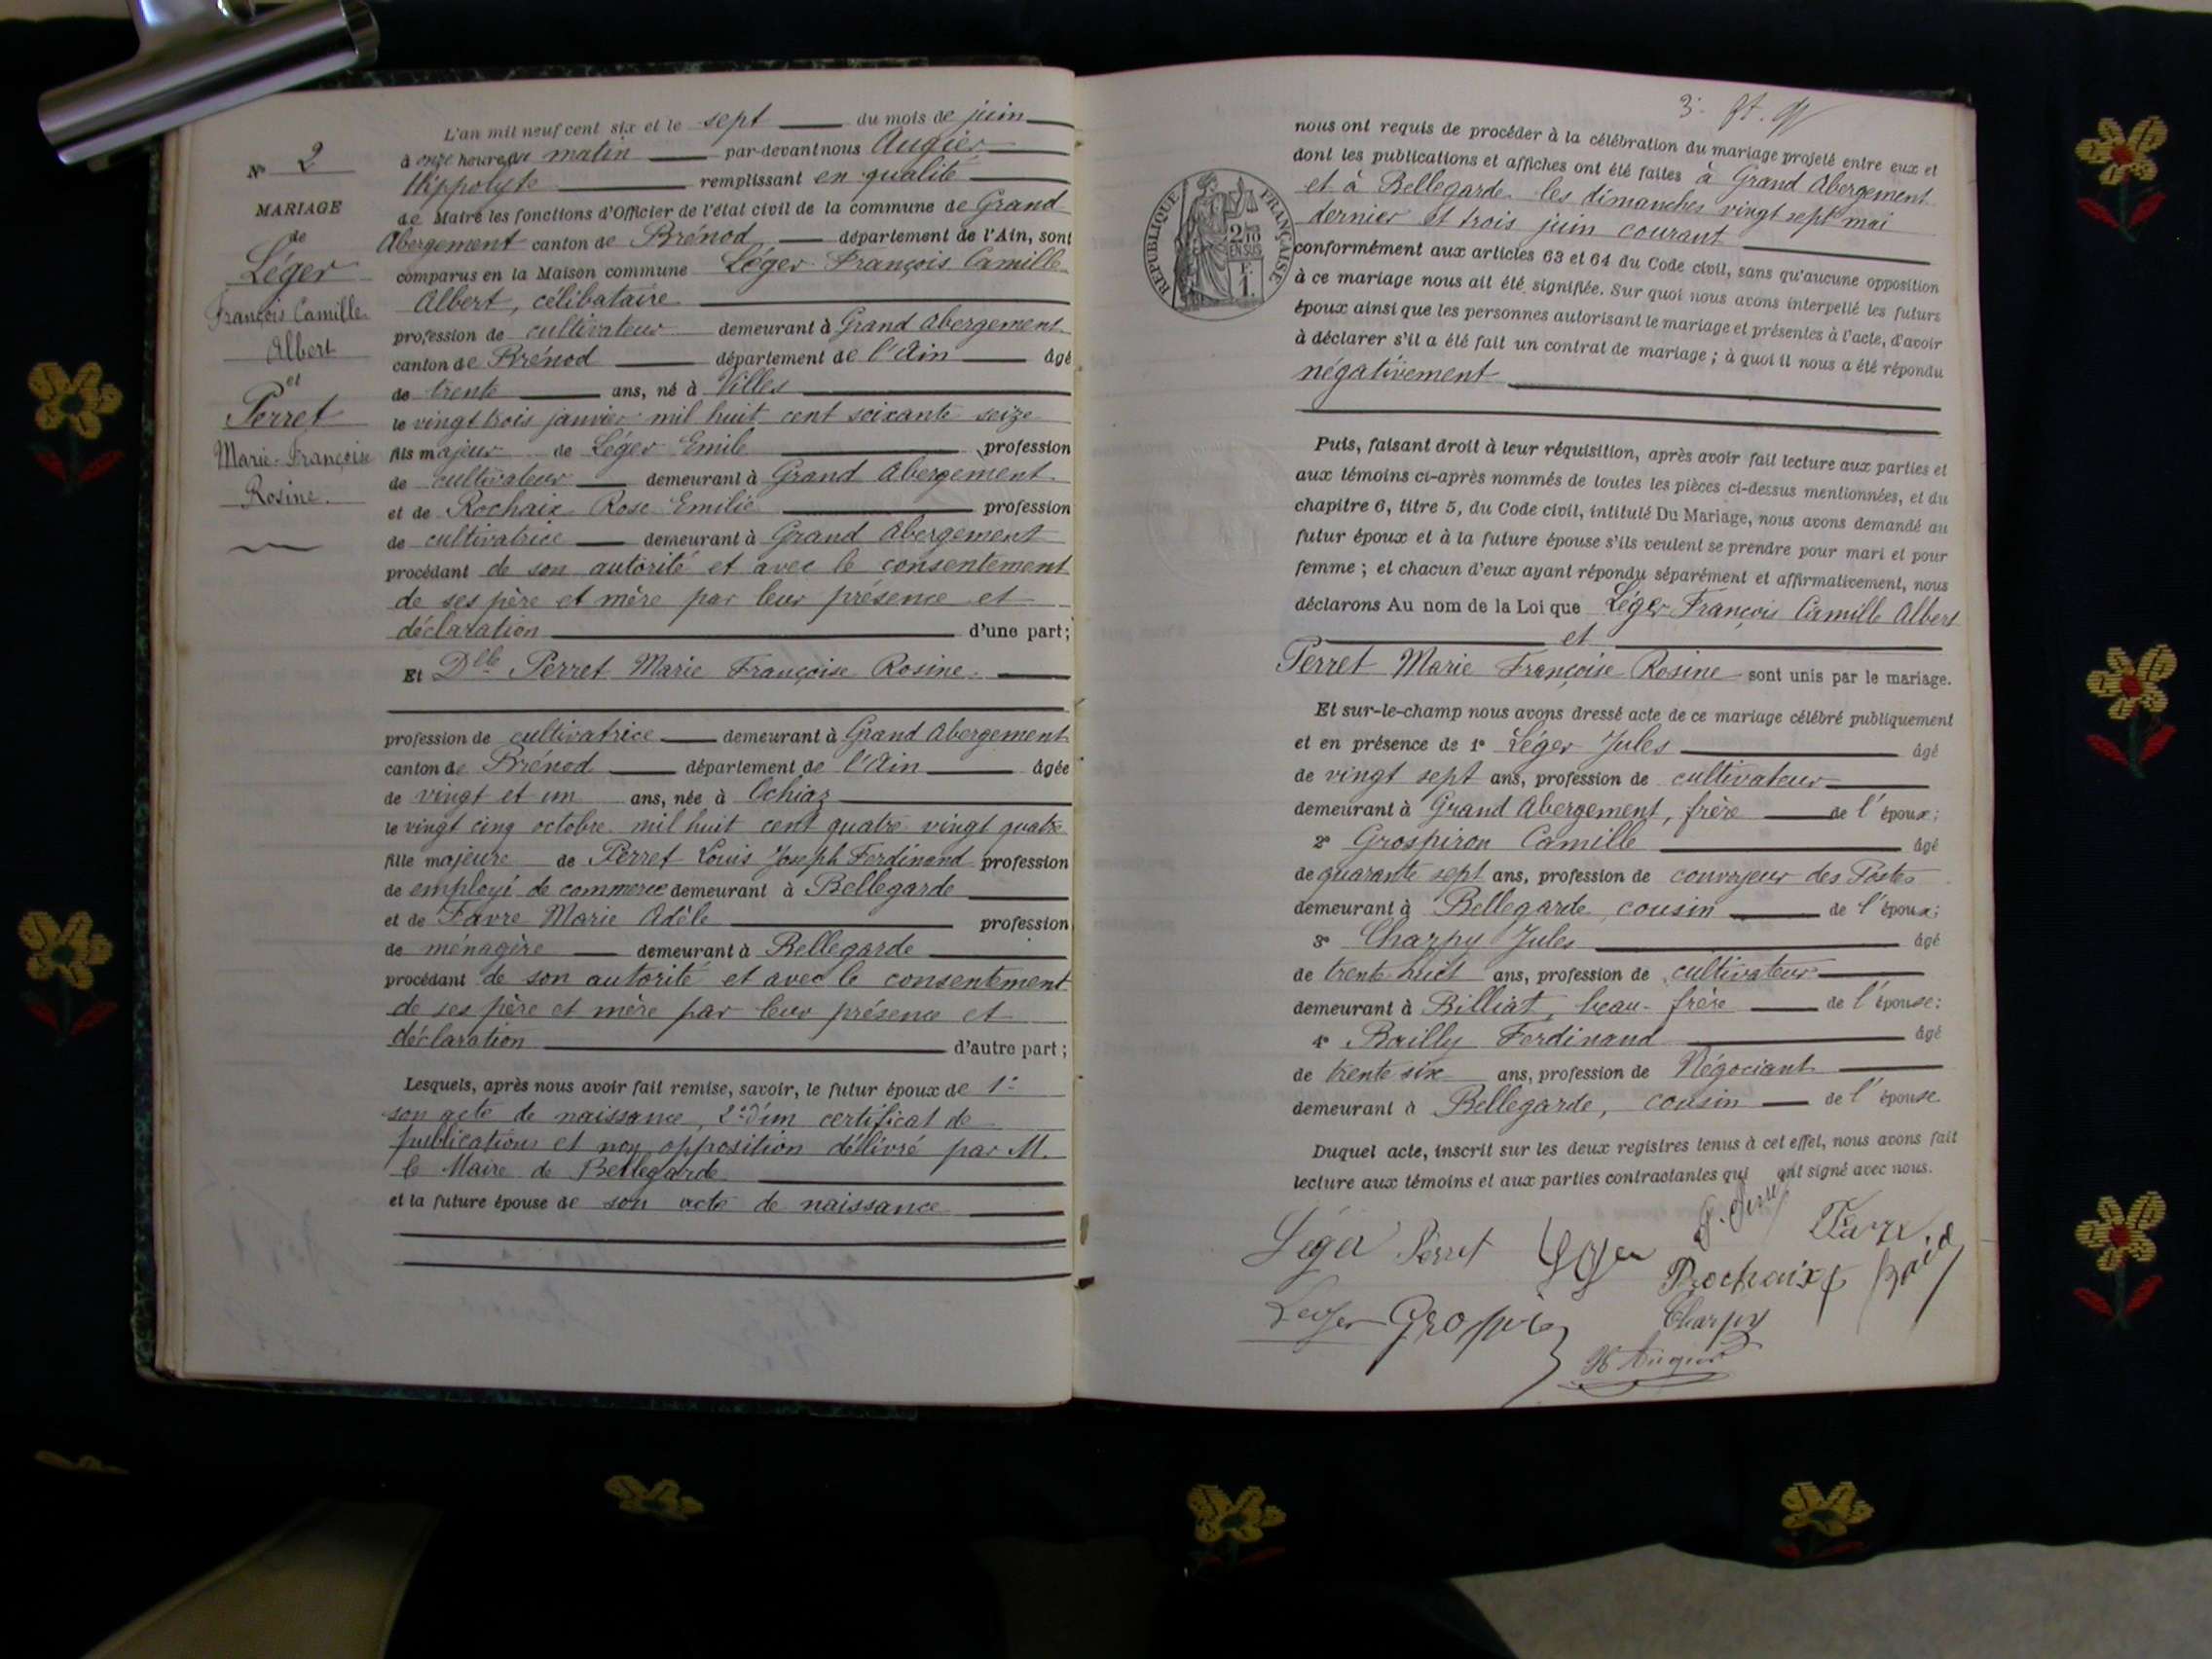 N° 2
MARIAGE
de
Léger
François Camille
Albert
et
Perret
Marie-Françoise
Rosine.
L'an mil neuf cent six et le sept du mois de juin
à onze heures du matin par-devant nous Augier
Hippolyte remplissant en qualité
de Maire les fonctions d'Officier de l'état civil de la commune de Grand
Abergement canton de Brénod département de l'Ain, sont
comparus en la Maison commune Léger François Camille
Albert, célibataire
profession de cultivateur demeurant à Grand Abergement
canton de Brénod département de l'Ain âgé
de trente ans, né à Villes
le vingt trois janvier mil huit cent soixante seize
fils majeur de Léger Emile profession
de cultivateur demeurant à Grand Abergement
et de Rochaix Rose Emilie profession
de cultivatrice demeurant à Grand Abergement
procédant de son autorité et avec le consentement
de ses père et mère par leur présence et
déclaration d'une part;
Et Dlle Perret Marie Françoise Rosine.
profession de cultivatrice demeurant à Grand Abergement
canton de Brénod département de l'Ain âgée
de vingt et un ans, née à Ochiaz
le vingt cinq octobre mil huit cent quatre vingt quatre
fille majeure de Perret Louis Joseph Ferdinand profession
de employé de commerce demeurant à Bellegarde
et de Favre Marie Adèle profession
de ménagère demeurant à Bellegarde
procédant de son autorité et avec le consentement
de ses père et mère par leur présence et
déclaration d'autre part;
Lesquels, après nous avoir fait remise, savoir, le futur époux de 1°
son acte de naissance, 2° d'un certificat de
publications et non opposition délivré par M.
le Maire de Bellegarde
et la future épouse de son acte de naissance
RÉPUBLIQUE FRANÇAISE
2/10
EN SUS
1 F.
nous ont requis de procéder à la célébration du mariage projeté entre eux et
dont les publications et affiches ont été faites à Grand Abergement
et à Bellegarde les dimanches vingt sept mai
dernier et trois juin courant
conformément aux articles 63 et 64 du Code civil, sans qu'aucune opposition
à ce mariage nous ait été signifiée. Sur quoi nous avons interpellé les futurs
époux ainsi que les personnes autorisant le mariage et présentes à l'acte, d'avoir
à déclarer s'il a été fait un contrat de mariage; à quoi il nous a été répondu
négativement
Puis, faisant droit à leur réquisition, après avoir fait lecture aux parties et
aux témoins ci-après nommés de toutes les pièces ci-dessus mentionnées, et du
chapitre 6, titre 5, du Code civil, intitulé Du Mariage, nous avons demandé au
futur époux et à la future épouse s'ils veulent se prendre pour mari et pour
femme; et chacun d'eux ayant répondu séparément et affirmativement, nous
déclarons Au nom de la Loi que Léger François Camille Albert
et
Perret Marie Françoise Rosine sont unis par le mariage.
Et sur-le-champ nous avons dressé acte de ce mariage célébré publiquement
et en présence de 1° Léger Jules âgé
de vingt sept ans, profession de cultivateur
demeurant à Grand Abergement, frère de l'époux;
2° Grospiron Camille âgé
de quarante sept ans, profession de convoyeur des Postes
demeurant à Bellegarde cousin de l'époux;
3° Charpy Jules âgé
de trente huit ans, profession de cultivateur
demeurant à Billiat, beau-frère de l'épouse:
4° Bailly Ferdinand âgé
de trente six ans, profession de Négociant
demeurant à Bellegarde, cousin de l'épouse
Duquel acte, inscrit sur les deux registres tenus à cet effet, nous avons fait
lecture aux témoins et aux parties contractantes qui ont signé avec nous.
Léger Perret Léger
Rochaix
Léger
Charpy
H Augier